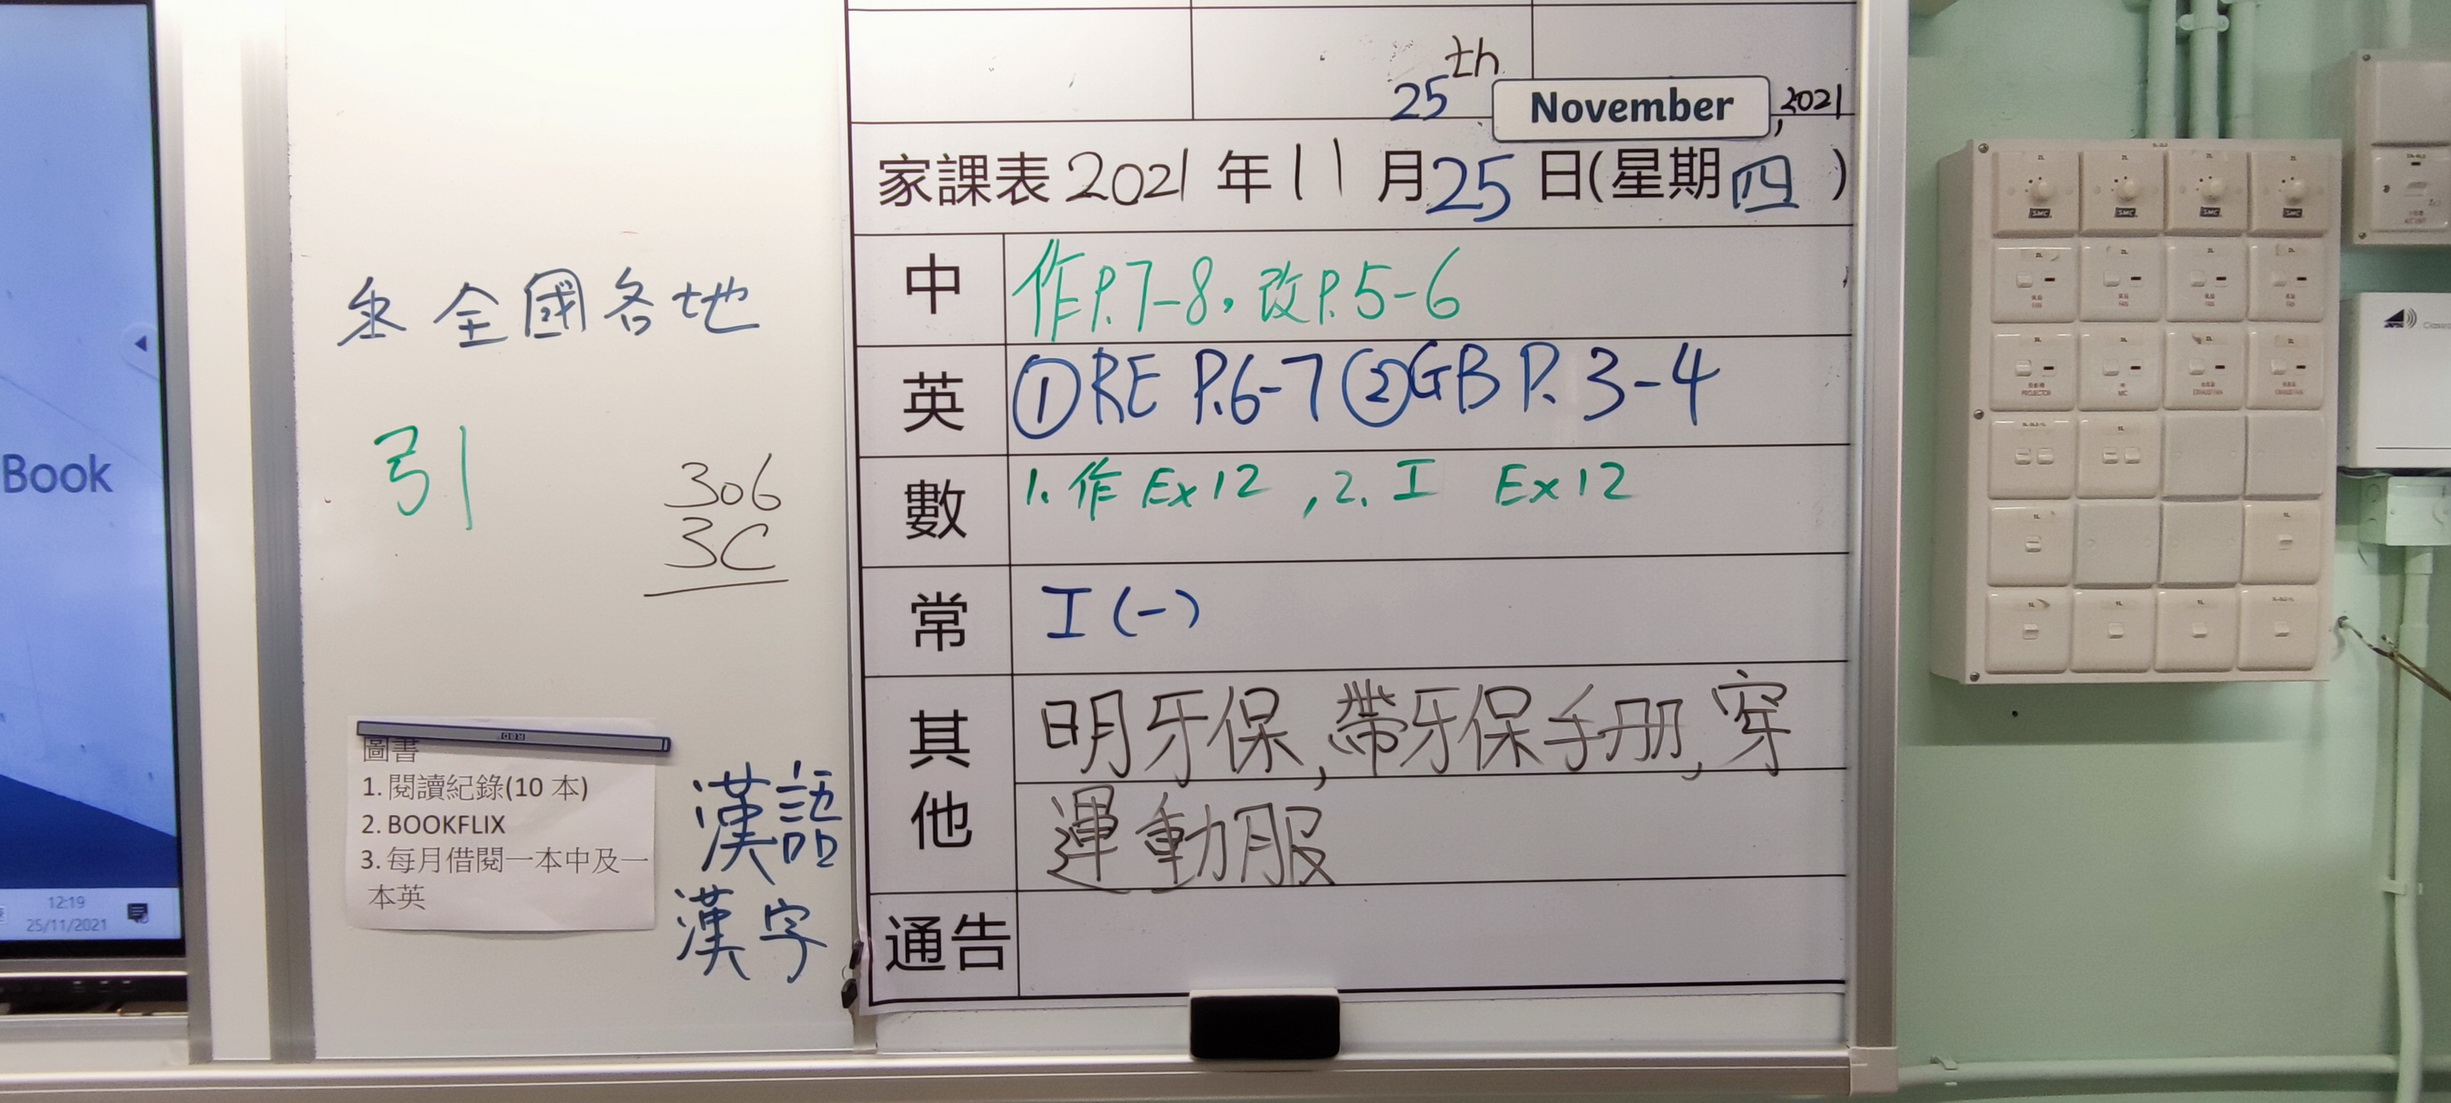 Book
12:19
25/11/2021
全國各地
引
306
3C
圖書
1. 閱讀紀錄(10 本)
2. BOOKFLIX
3. 每月借閱一本中及一
本英
漢語
漢字
25th November, 2021
家課表 2021 年 11 月 25 日(星期四)
中 作P.7-8, 改P.5-6
英 ①RE P.6-7 ②GB P. 3-4
數 1. 作 Ex12, 2. 工 Ex12
常 工(一)
其他 明牙保, 帶牙保手册, 穿
運動服
通告